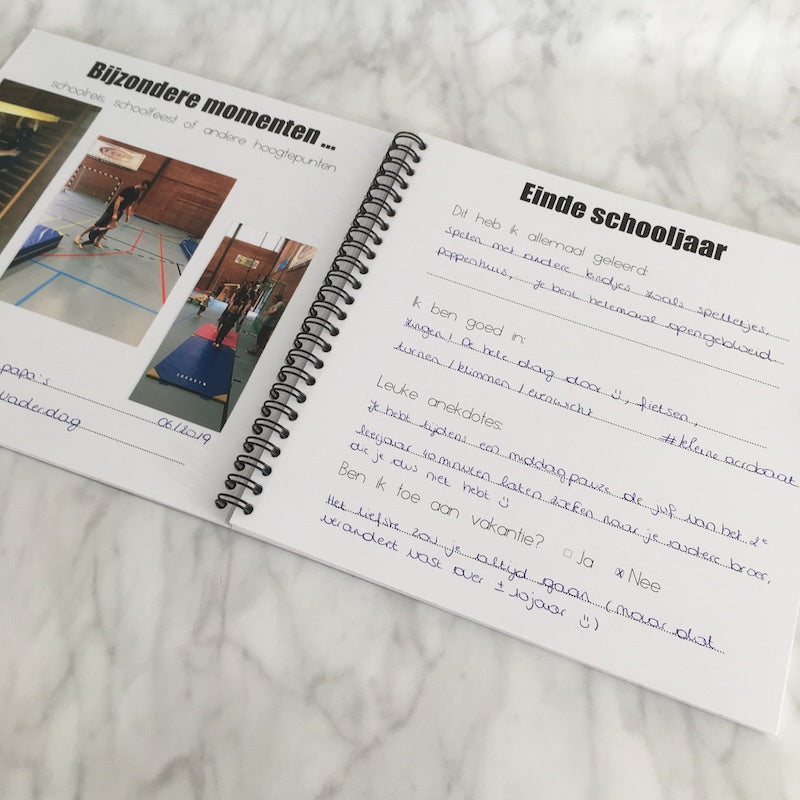 Bijzondere momenten...
schoolreis, schoolfeest of andere hoogtepunten
papa's
vaderdag
06/2019
Einde schooljaar
Dit heb ik allemaal geleerd:
spelen met andere kindjes zoals spelletjes,
poppenhuis, je bent helemaal opengebloeid
Ik ben goed in:
zingen! De hele dag door :), fietsen,
turnen / klimmen / evenwicht #kleineacrobaat
Leuke anekdotes:
Je hebt tijdens een middagpauze de juf van het 2e
leerjaar 40 minuten laten zoeken naar je oudere broer,
die je dus niet hebt :)
Ben ik toe aan vakantie? Ja x Nee
Het liefste zou je altijd gaan (maar dat
verandert vast over ± 10 jaar :))